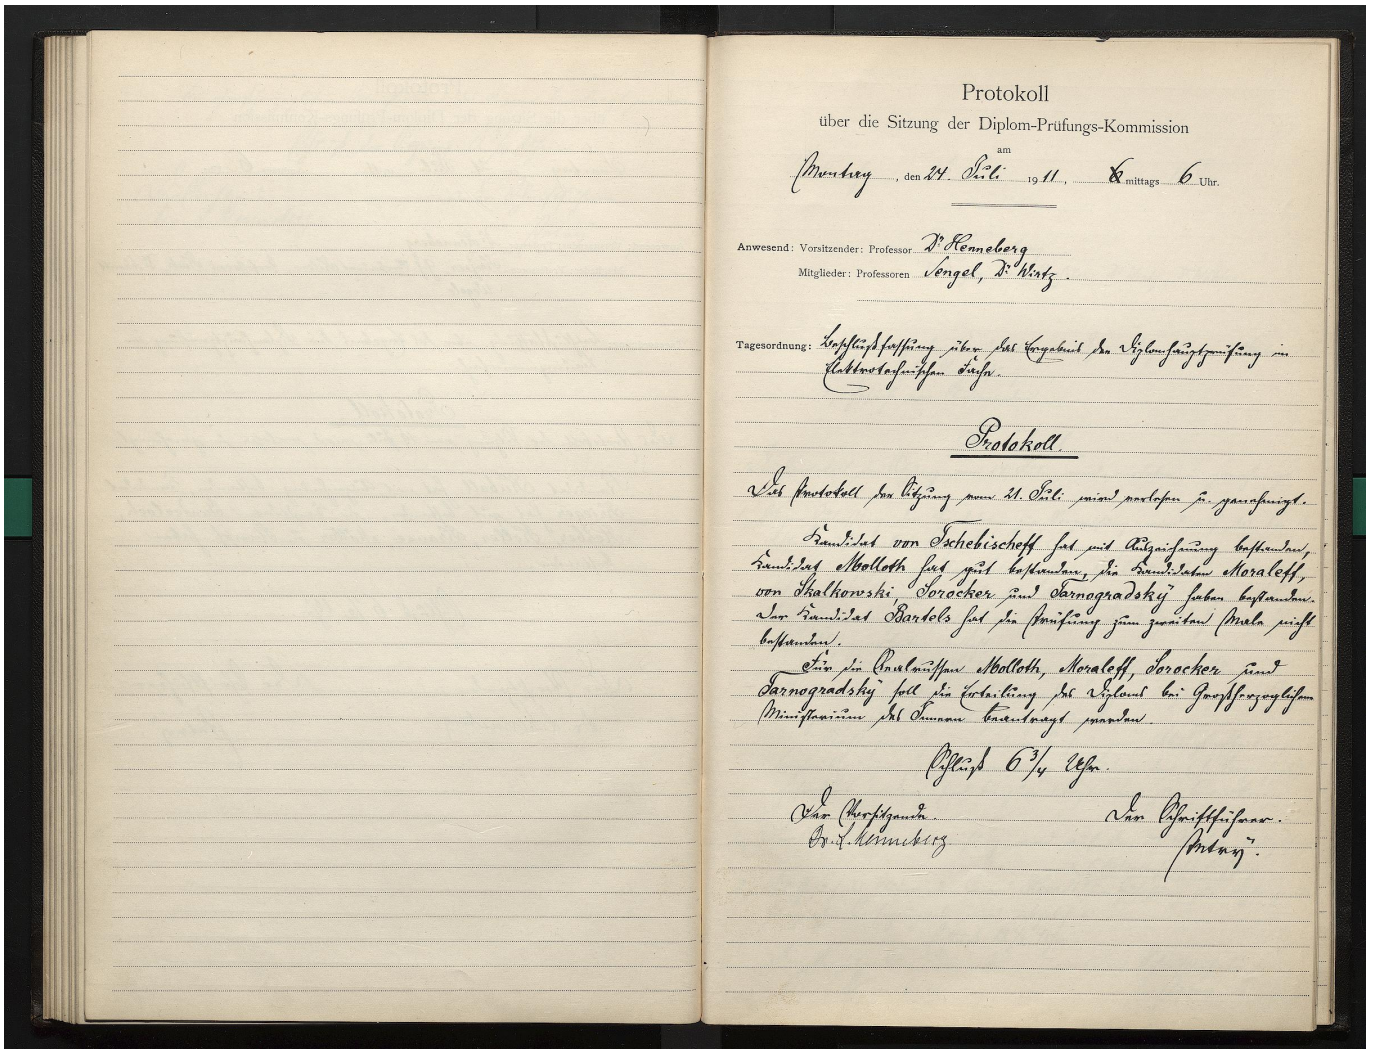 Protokoll
über die Sitzung der Diplom-Prüfungs-Kommission
am
Montag, den 24. Juli 1911, mittags 6 Uhr.
Anwesend: Vorsitzender: Professor Dr Henneberg
Mitglieder: Professoren Sengel, Dr Wirtz.
Tagesordnung: Beschlußfassung über das Ergebnis der Diplomhauptprüfung im
Elektrotechnischen Fache.
Protokoll.
Das Protokoll der Sitzung vom 21. Juli wird verlesen u. genehmigt.
Kandidat von Tschebischeff hat mit Auszeichnung bestanden,
Kandidat Molloth hat gut bestanden, die Kandidaten Moraleff,
von Skalkowski, Sorocker und Tarnogradsky haben bestanden.
Der Kandidat Bartels hat die Prüfung zum zweiten Male nicht
bestanden.
Für die Realrussen Molloth, Moraleff, Sorocker und
Tarnogradsky soll die Erteilung des Diploms bei Großherzoglichem
Ministerium des Innern beantragt werden.
Schluß 6 3/4 Uhr.
Der Vorsitzende. Der Schriftführer.
Dr. L. Henneberg. Petry.